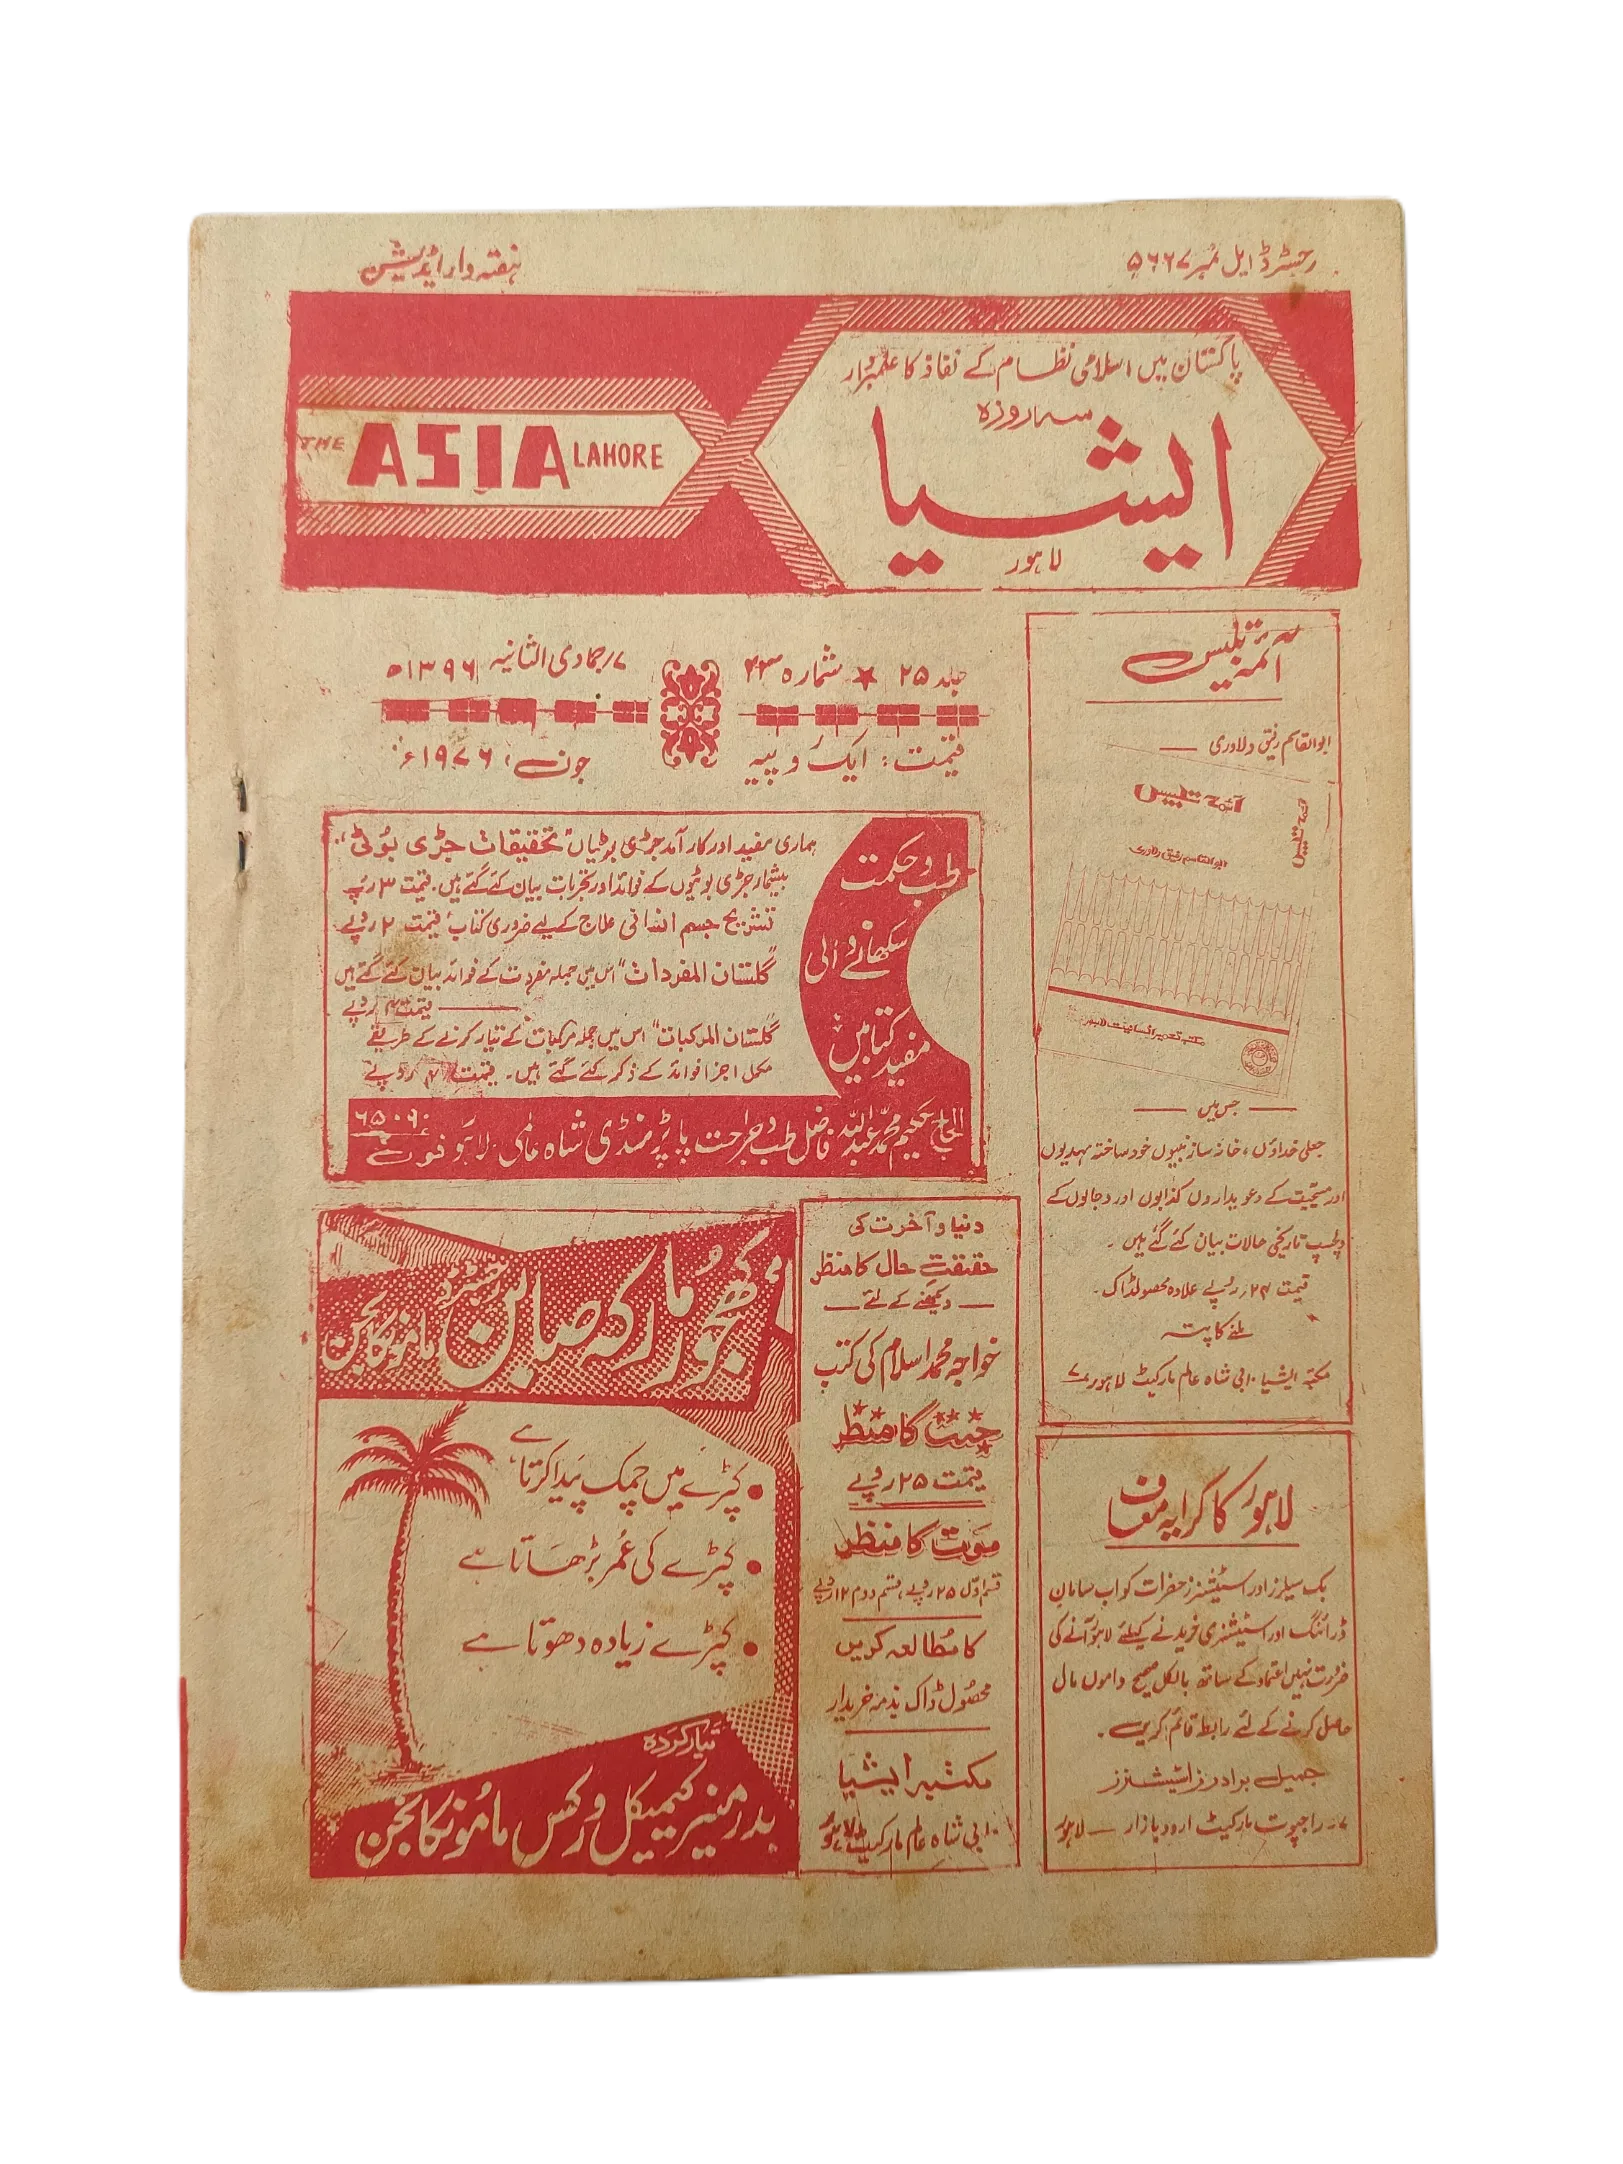 رجسٹرڈ ایل نمبر ۵۶۶۷
ہفتہ وار ایڈیشن
پاکستان میں اسلامی نظام کے نفاذ کا علمبردار
سہ روزہ
ایشیا
لاہور
THE ASIA LAHORE
جلد ۲۵ ★ شمارہ ۲۳
۷؍ جمادی الثانیہ ۱۳۹۶ھ
قیمت: ایک روپیہ
جون، ۱۹۷۶ء
آئمہ تلبیس
ابوالقاسم رفیق دلاوری
آئمہ تلبیس
آئمہ تلبیس
ابوالقاسم رفیق دلاوری
مکتبہ تعمیر انسانیت لاہور
جس میں
جعلی خداؤں، خانہ ساز نبیوں خود ساختہ مہدیوں
اور مسیحیت کے دعویداروں کذابوں اور دجالوں کے
دلچسپ تاریخی حالات بیان کئے گئے ہیں۔
قیمت ۲۴؍ روپے علاوہ محصولڈاک۔
ملنے کا پتہ
مکتبہ ایشیا ۱۰ بی شاہ عالم مارکیٹ لاہور ۷
طب و حکمت
سکھانے والی
مفید کتابیں
ہماری مفید اور کار آمد جڑی بوٹیاں "تحقیقات جڑی بوٹی"
بیشمار جڑی بوٹیوں کے فوائد اور تجربات بیان کئے گئے ہیں۔ قیمت ۳ روپے
تشریح جسم انسانی علاج کے لیے ضروری کتاب قیمت ۲ روپے
"گلستان المفردات" اس میں جملہ مفردت کے فوائد بیان کئے گئے ہیں
قیمت ۴ روپے
"گلستان المرکبات" اس میں جملہ مرکبات کے تیار کرنے کے طریقے
مکمل اجزا فوائد کے ذکر کئے گئے ہیں۔ قیمت ۴ روپے
الحاج حکیم محمد عبداللہ فاضل طب و جراحت پاپڑ منڈی شاہ عالمی لاہور فون ۶۵۰۹۰
کھجور مارکہ صابن
ماموکانجن
کپڑے میں چمک پیدا کرتا ہے
کپڑے کی عُمر بڑھاتا ہے
کپڑے زیادہ دھوتا ہے
تیار کردہ
بدر منیر کیمیکل ورکس مامُونکانجن
دنیا و آخرت کی
حقیقتِ حال کا منظر
دیکھنے کے لئے
خواجہ محمد اسلام کی کتب
جنت کا منظر
قیمت ۲۵ روپے
موت کا منظر
قسم اوّل ۲۵ روپے، قسم دوم ۱۲ روپے
کا مُطالعہ کریں
محصُول ڈاک بذمہ خریدار
مکتبہ ایشیا
۱۰ بی شاہ عالم مارکیٹ لاہور
لاہور کا کرایہ معاف
بک سیلرز اور اسٹیشنرز حضرات کو اب سامان
ڈرائنگ اور اسٹیشنری خریدنے کیلئے لاہور آنے کی
ضرورت نہیں اعتماد کے ساتھ بالکل صحیح داموں مال
حاصل کرنے کے لئے رابطہ قائم کریں۔
جمیل برادرز اسٹیشنرز
۷۔ راجپوت مارکیٹ اردو بازار — لاہور